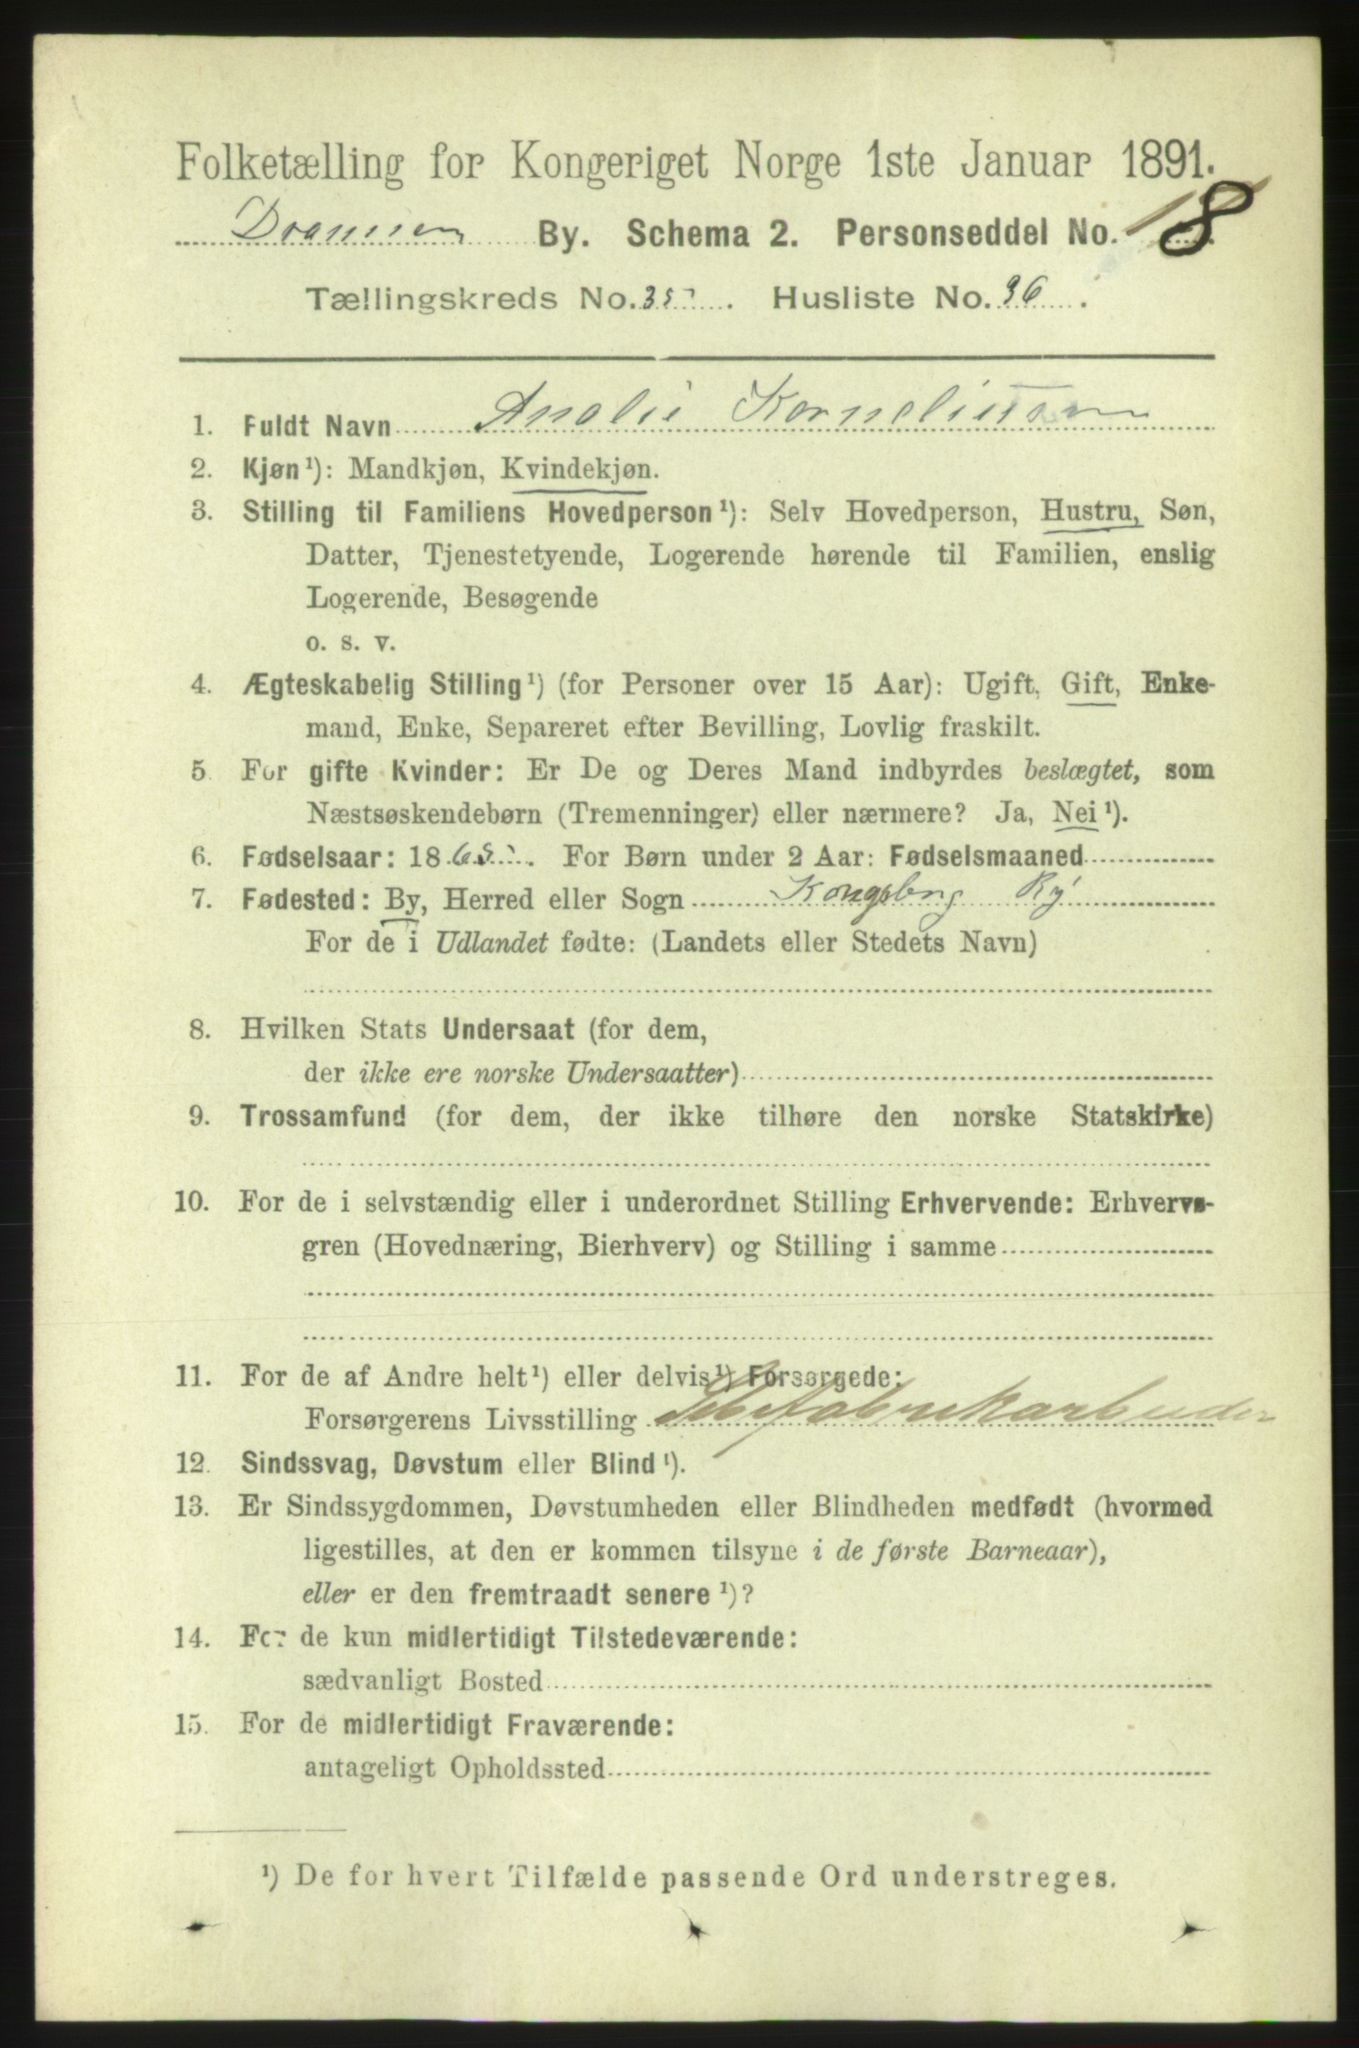 Folketælling for Kongeriget Norge 1ste Januar 1891.
Drammen By. Schema 2. Personseddel No. 8
Tællingskreds No. 35. Husliste No. 36.
1. Fuldt Navn Analie Korneliussen
2. Kjøn ¹): Mandkjøn, Kvindekjøn.
3. Stilling til Familiens Hovedperson ¹): Selv Hovedperson, Hustru, Søn,
Datter, Tjenestetyende, Logerende hørende til Familien, enslig
Logerende, Besøgende
o. s. v.
4. Ægteskabelig Stilling ¹) (for Personer over 15 Aar): Ugift, Gift, Enke-
mand, Enke, Separeret efter Bevilling, Lovlig fraskilt.
5 For gifte Kvinder: Er De og Deres Mand indbyrdes beslægtet, som
Næstsøskendebørn (Tremenninger) eller nærmere? Ja, Nei ¹).
6. Fødselsaar: 1865. For Børn under 2 Aar: Fødselsmaaned
7. Fødested: By, Herred eller Sogn Kongsberg By
For de i Udlandet fødte: (Landets eller Stedets Navn)
8. Hvilken Stats Undersaat (for dem,
der ikke ere norske Undersaatter)
9. Trossamfund (for dem, der ikke tilhøre den norske Statskirke)
10. For de i selvstændig eller i underordnet Stilling Erhvervende: Erhvervs-
gren (Hovednæring, Bierhverv) og Stilling i samme
11. For de af Andre helt ¹) eller delvis ¹) Forsørgede:
Forsørgerens Livsstilling
12. Sindssvag, Døvstum eller Blind ¹).
13. Er Sindssygdommen, Døvstumheden eller Blindheden medfødt (hvormed
ligestilles, at den er kommen tilsyne i de første Barneaar),
eller er den fremtraadt senere ¹)?
14. For de kun midlertidigt Tilstedeværende:
sædvanligt Bosted
15. For de midlertidigt Fraværende:
antageligt Opholdssted
¹) De for hvert Tilfælde passende Ord understreges.